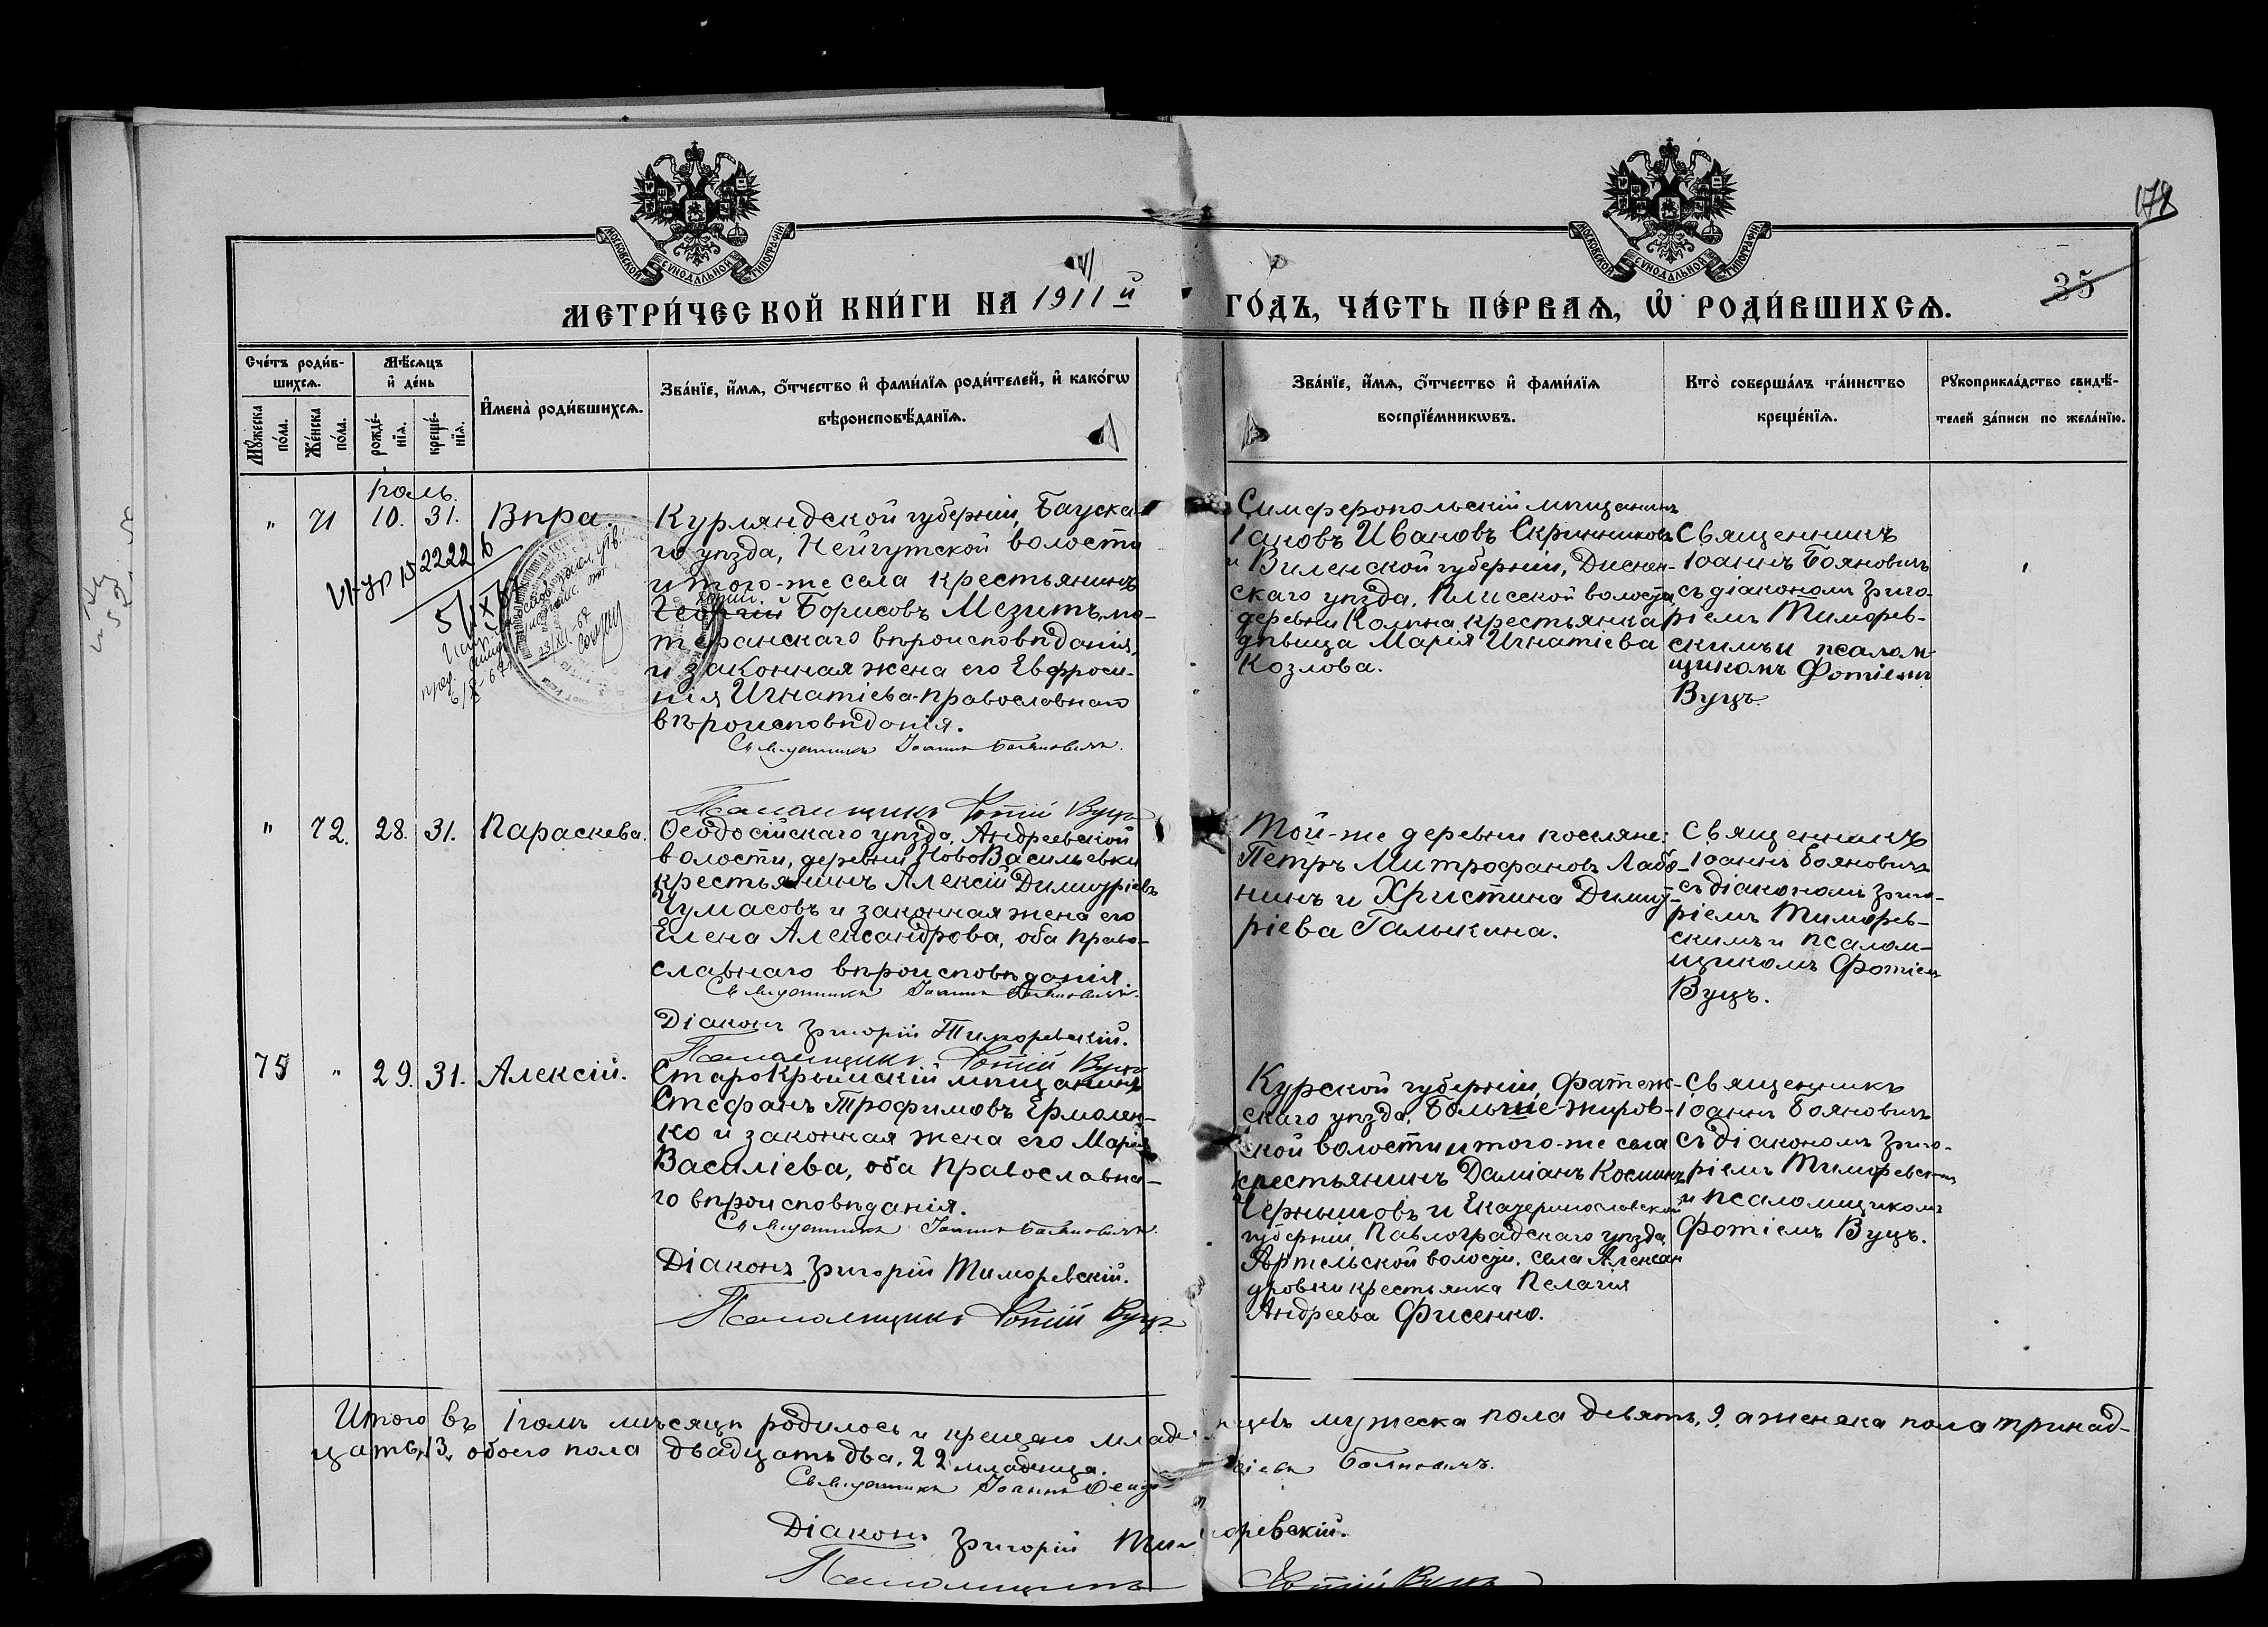 178
35
МОСКОВСКОЙ СѴНОДАЛЬНОЙ ТИПОГРАФІИ
МОСКОВСКОЙ СѴНОДАЛЬНОЙ ТИПОГРАФІИ
МЕТРИ́ЧЕСКОЙ КНИ́ГИ НА 1911 й ГО́ДЪ, ЧА́СТЬ ПЕ́РВАѦ, Ѡ҆ РОДИ́ВШИХСѦ.
Сче́тъ роди́в-
шихсѧ.
Мꙋ́жеска
по́ла.
Же́нска
по́ла.
Мѣ́сѧцъ
и҆ де́нь
рожде́-
нїѧ.
креще́-
нїѧ.
И҆мена̀ роди́вшихсѧ.
Зва́нїе, и҆́мѧ, ѻ҆́тчество и҆ фами́лїѧ роди́телей, и҆ како́гѡ
вѣроисповѣ́данїѧ.
Зва́нїе, и҆́мѧ, ѻ҆́тчество и҆ фами́лїѧ
воспрїе́мникѡвъ.
Кто̀ соверша́лъ та́инство
креще́нїѧ.
Рꙋкоприкла́дство свидѣ́-
телей за́писи по жела́нїю.
"
71
Іюль.
10. 31.
Вѣра.
Курляндской губерніи, Бауска-
го уѣзда, Нейгутской волости
и того-же села крестьянинъ
Георгій Борисовъ Мезитъ, лю-
теранскаго вѣроисповѣданія,
и законная жена его Евфроси-
нія Игнатіева-православнаго
вѣроисповѣданія.
Священникъ Іоаннъ Бояновичъ.
Псаломщикъ Фотій Вуцъ
2222
5/IX 67
23/XI-67
Симферопольскій мѣщанинъ
Іаковъ Ивановъ Скрынниковъ
и Виленской губерніи, Диснен-
скаго уѣзда, Плисской волости,
деревни Колина крестьянка
дѣвица Марія Игнатіева
Козлова.
Священникъ
Іоаннъ Бояновичъ
съ діакономъ Григо-
ріемъ Тиморев-
скимъ и псалом-
щикомъ Фотіемъ
Вуцъ.
"
72.
28. 31.
Параскева.
Ѳеодосійскаго уѣзда, Андреевской
волости, деревни НовоВасильевки
крестьянинъ Алексій Димитріевъ
Чумасовъ и законная жена его
Елена Александрова, оба право-
славнаго вѣроисповѣданія.
Священникъ Іоаннъ Бояновичъ.
Діаконъ Григорій Тиморевскій.
Псаломщикъ Фотій Вуцъ
Той-же деревни поселяне:
Петръ Митрофановъ Лабо-
нинъ и Христина Димит-
ріева Галыкина.
Священникъ
Іоаннъ Бояновичъ
съ діакономъ Григо-
ріемъ Тиморев-
скимъ и псалом-
щикомъ Фотіемъ
Вуцъ.
75
"
29. 31.
Алексій.
СтароКрымскій мѣщанинъ
Стефанъ Трофимовъ Ермолен-
ко и законная жена его Марія
Василіева, оба православна-
го вѣроисповѣданія.
Священникъ Іоаннъ Бояновичъ.
Діаконъ Григорій Тиморевскій.
Псаломщикъ Фотій Вуцъ
Курской губерніи, Фатеж-
скаго уѣзда, Больше-Жиров-
ской волости и того-же села
крестьянинъ Даміанъ Косминъ
Чернышовъ и Екатеринославской
губерніи, Павлоградскаго уѣзда,
Артельской волости, села Алексан
дровки крестьянка Пелагія
Андреева Фисенко.
Священникъ
Іоаннъ Бояновичъ
съ діакономъ Григо-
ріемъ Тиморевскимъ
и псаломщикомъ
Фотіемъ Вуцъ.
Итого въ Іюлѣ мѣсяцѣ родилось и крещено младенцевъ мужеска пола девять, 9, а женска пола тринад-
цать, 13, обоего пола двадцать два, 22 младенца.
Священникъ Іоаннъ Бояновичъ.
Діаконъ Григорій Тиморевскій.
Псаломщикъ Фотій Вуцъ